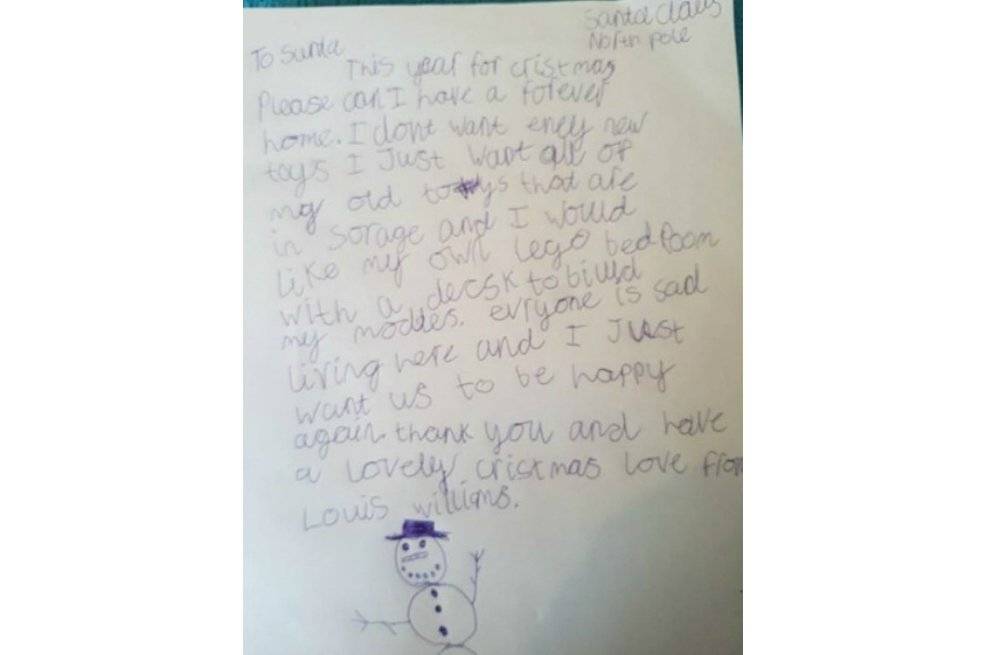 Santa Claus
North pole
To Santa
This year for cristmas
Please can I have a forever
home. I dont want eney new
toys I Just want all of
my old toys that are
in sorage and I would
like my own lego bedRoom
with a decsk to biuld
my moddes. evryone is sad
living here and I Just
want us to be happy
again thank you and have
a lovely cristmas love from
Louis willims.